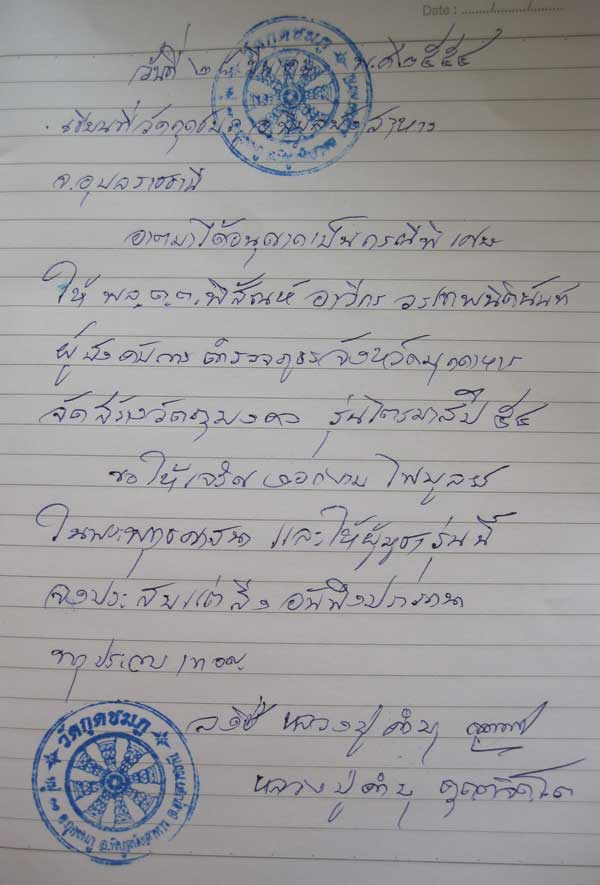 Date : ......../........./.........
วันที่ ๒๘ มีนาคม พ.ศ ๒๕๕๔
เขียนที่วัดกุดชมภู อ.พิบูลมังสาหาร
จ.อุบลราชธานี
อาตมาได้อนุญาตเป็นกรณีพิเศษ
ให้ พล.ต.ต.พิสัณห์ อาวีกร วรเทพนิตินันท์
ผู้บังคับการ ตำรวจภูธรจังหวัดมุกดาหาร
จัดสร้างวัตถุมงคล รุ่นไตรมาสปี ๕๔
ขอให้เจริญงอกงาม ไพบูลย์
ในพระพุทธศาสนา และให้ผู้บูชารุ่นนี้
จงประสบแต่สิ่งอันพึงปรารถนา
ทุกประการ เทอญ
ลงชื่อ หลวงปู่คำบุ
หลวงปู่คำบุ คุตฺตจิตฺโต
วัดกุดชมภู